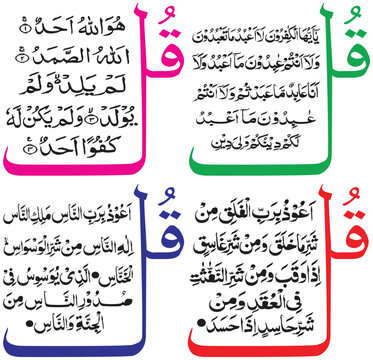 قُلْ
يٰٓاَيُّهَا الْكٰفِرُوْنَ لَآ اَعْبُدُ مَا تَعْبُدُوْنَ
وَلَآ اَنْتُمْ عٰبِدُوْنَ مَآ اَعْبُدُ وَلَآ
اَنَا عَابِدٌ مَّا عَبَدْتُّمْ وَلَآ اَنْتُمْ
عٰبِدُوْنَ مَآ اَعْبُدُ
لَكُمْ دِيْنُكُمْ وَلِيَ دِيْنِ
قُلْ
هُوَ اللّٰهُ اَحَدٌ
اَللّٰهُ الصَّمَدُ
لَمْ يَلِدْ وَلَمْ
يُوْلَدْ وَلَمْ يَكُنْ لَّهٗ
كُفُوًا اَحَدٌ
قُلْ
اَعُوْذُ بِرَبِّ الْفَلَقِ مِنْ
شَرِّ مَا خَلَقَ وَمِنْ شَرِّ غَاسِقٍ
اِذَا وَقَبَ وَمِنْ شَرِّ النَّفّٰثٰتِ
فِي الْعُقَدِ وَمِنْ
شَرِّ حَاسِدٍ اِذَا حَسَدَ
قُلْ
اَعُوْذُ بِرَبِّ النَّاسِ مَلِكِ النَّاسِ
اِلٰهِ النَّاسِ مِنْ شَرِّ الْوَسْوَاسِ
الْخَنَّاسِ الَّذِيْ يُوَسْوِسُ فِيْ
صُدُوْرِ النَّاسِ مِنَ
الْجِنَّةِ وَالنَّاسِ